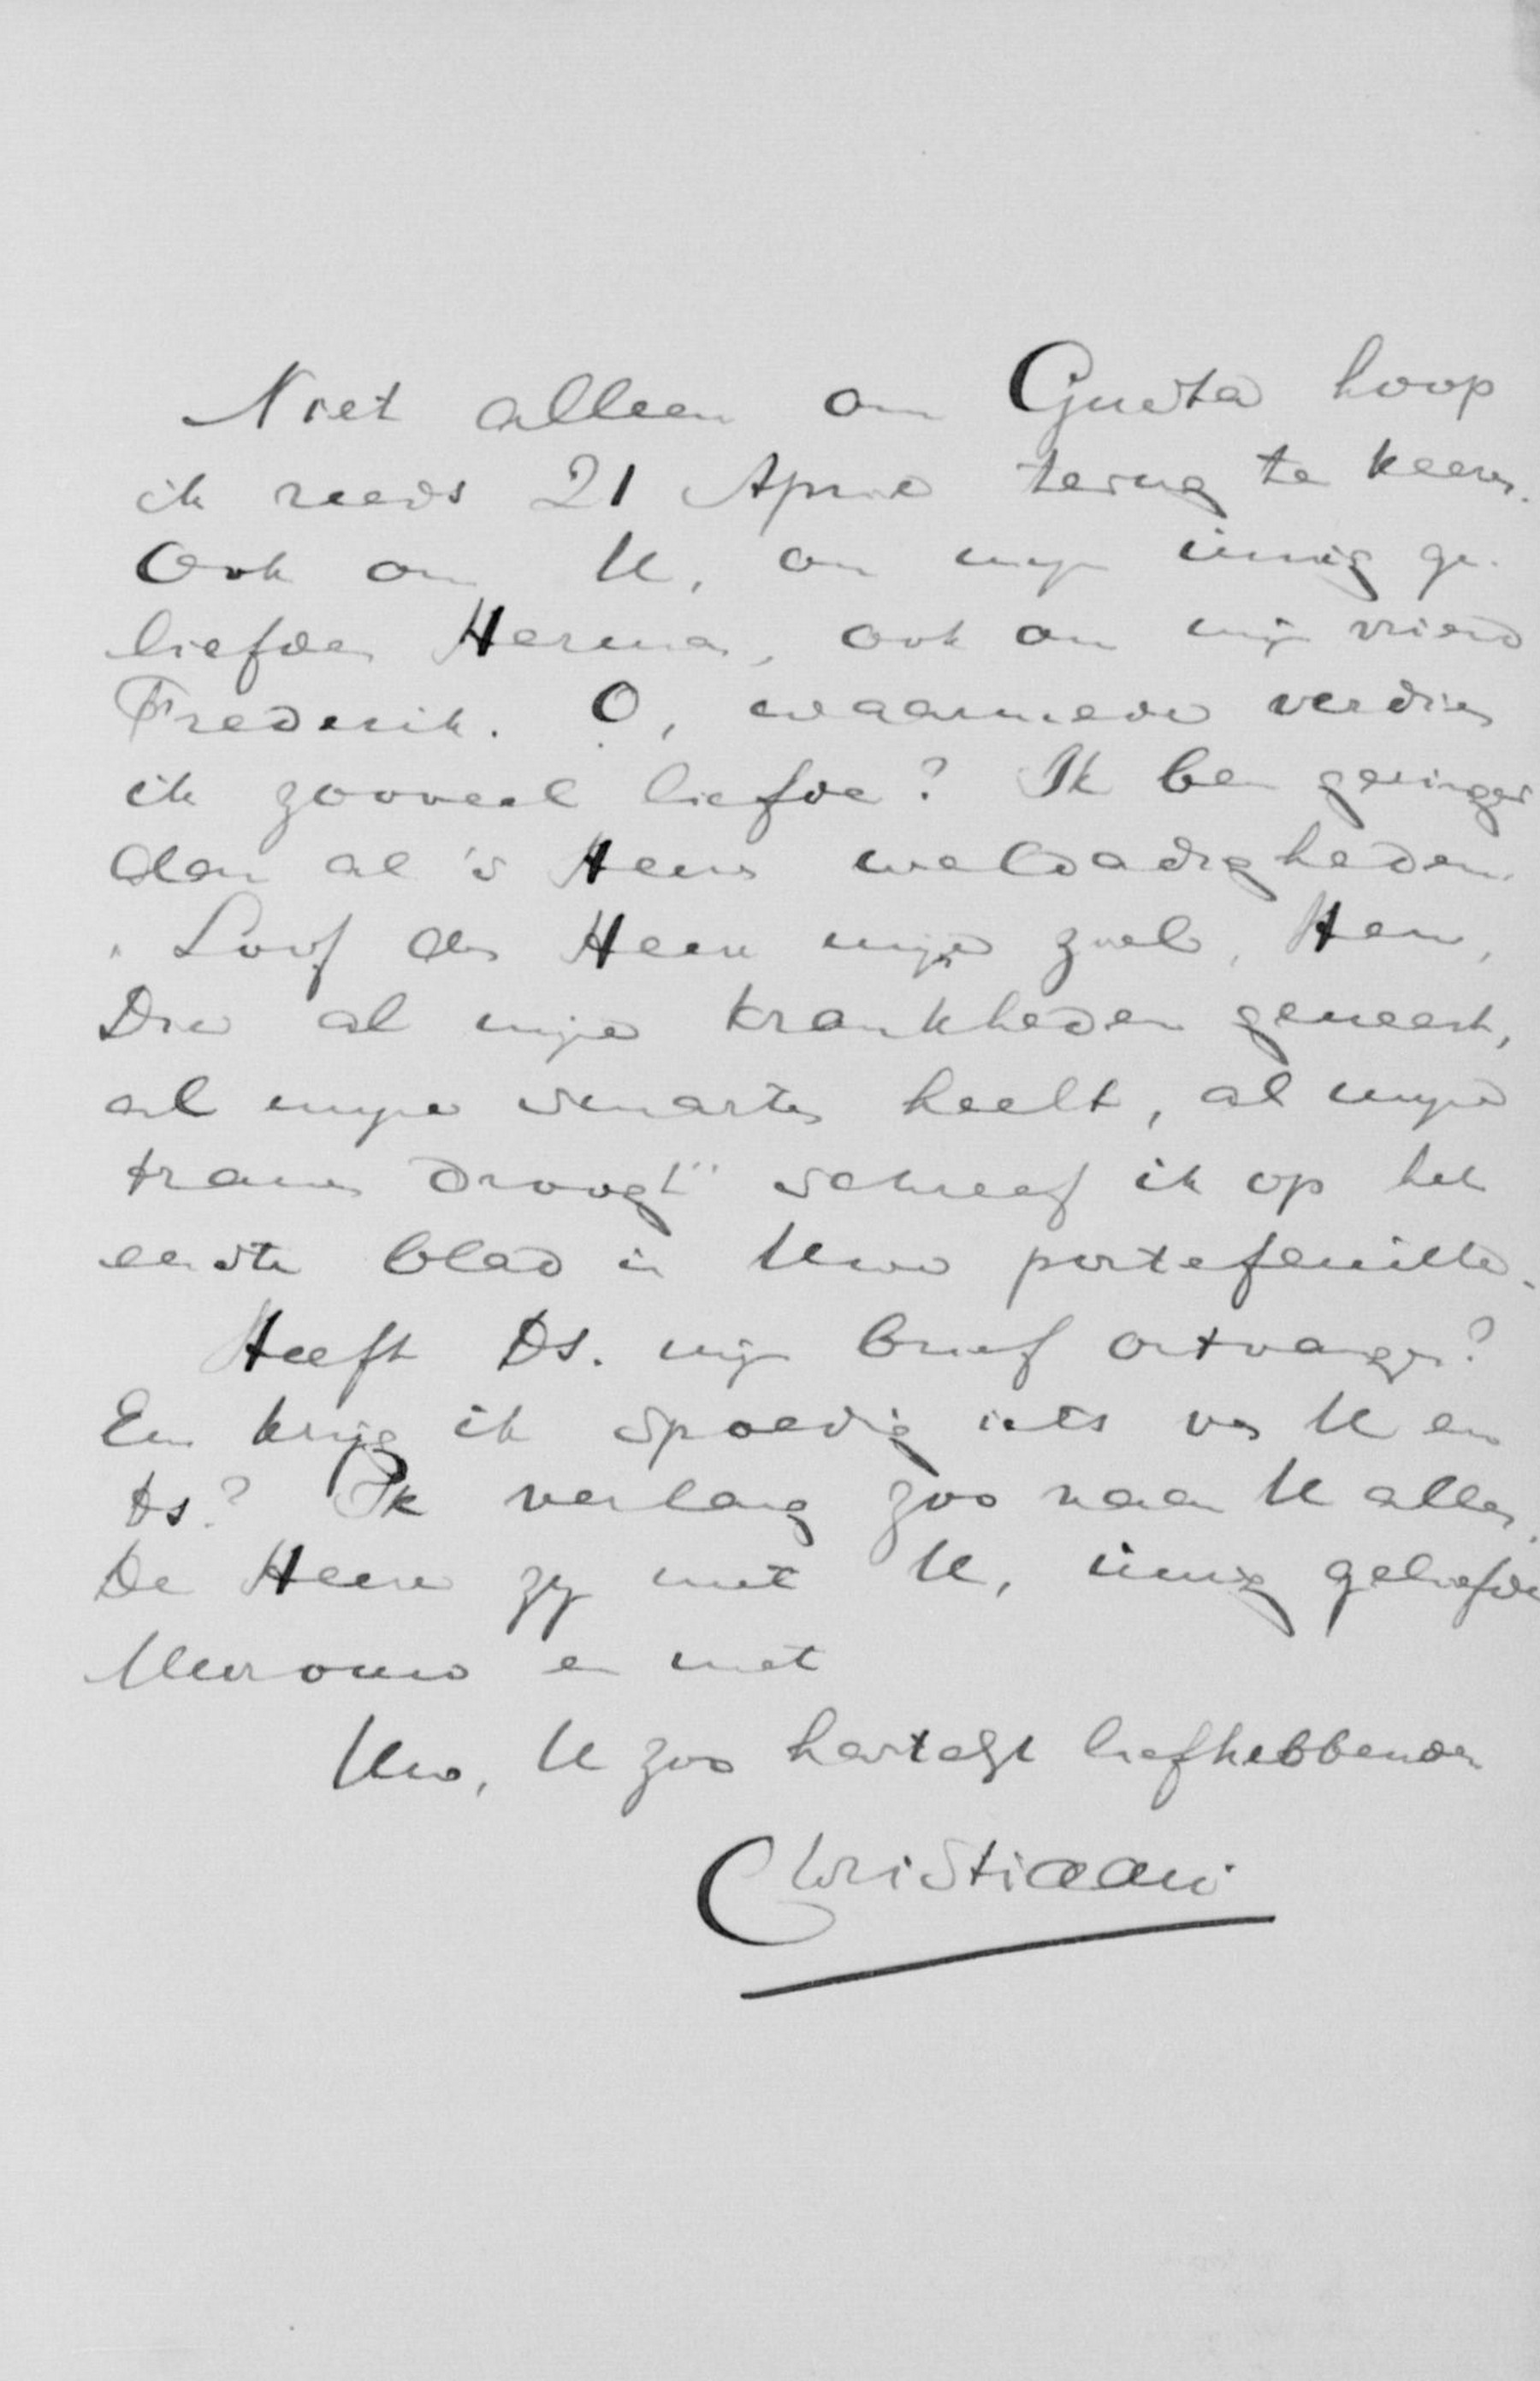 Niet alleen om Gusta hoop
ik reeds 21 April terug te keeren.
Ook om U, om mijn innig ge-
liefden Herman, ook om mijn vriend
Frederik. O, waarmede verdien
ik zooveel liefde? Ik ben geringer
dan al 's Heeren weldadigheden.
"Loof den Heere mijne ziel, Hem,
Die al mijne krankheden geneest,
al mijne smarten heelt, al mijne
tranen droogt" schreef ik op het
eerste blad in Uwe portefeuille.
Heeft Ds. mijn brief ontvangen?
En krijg ik spoedig iets van U en
Ds? Ik verlang zoo naar U allen.
De Heere zij met U, innig geliefde
Mevrouw en met
Uw, U zoo hartelijk liefhebbenden
Christiaan